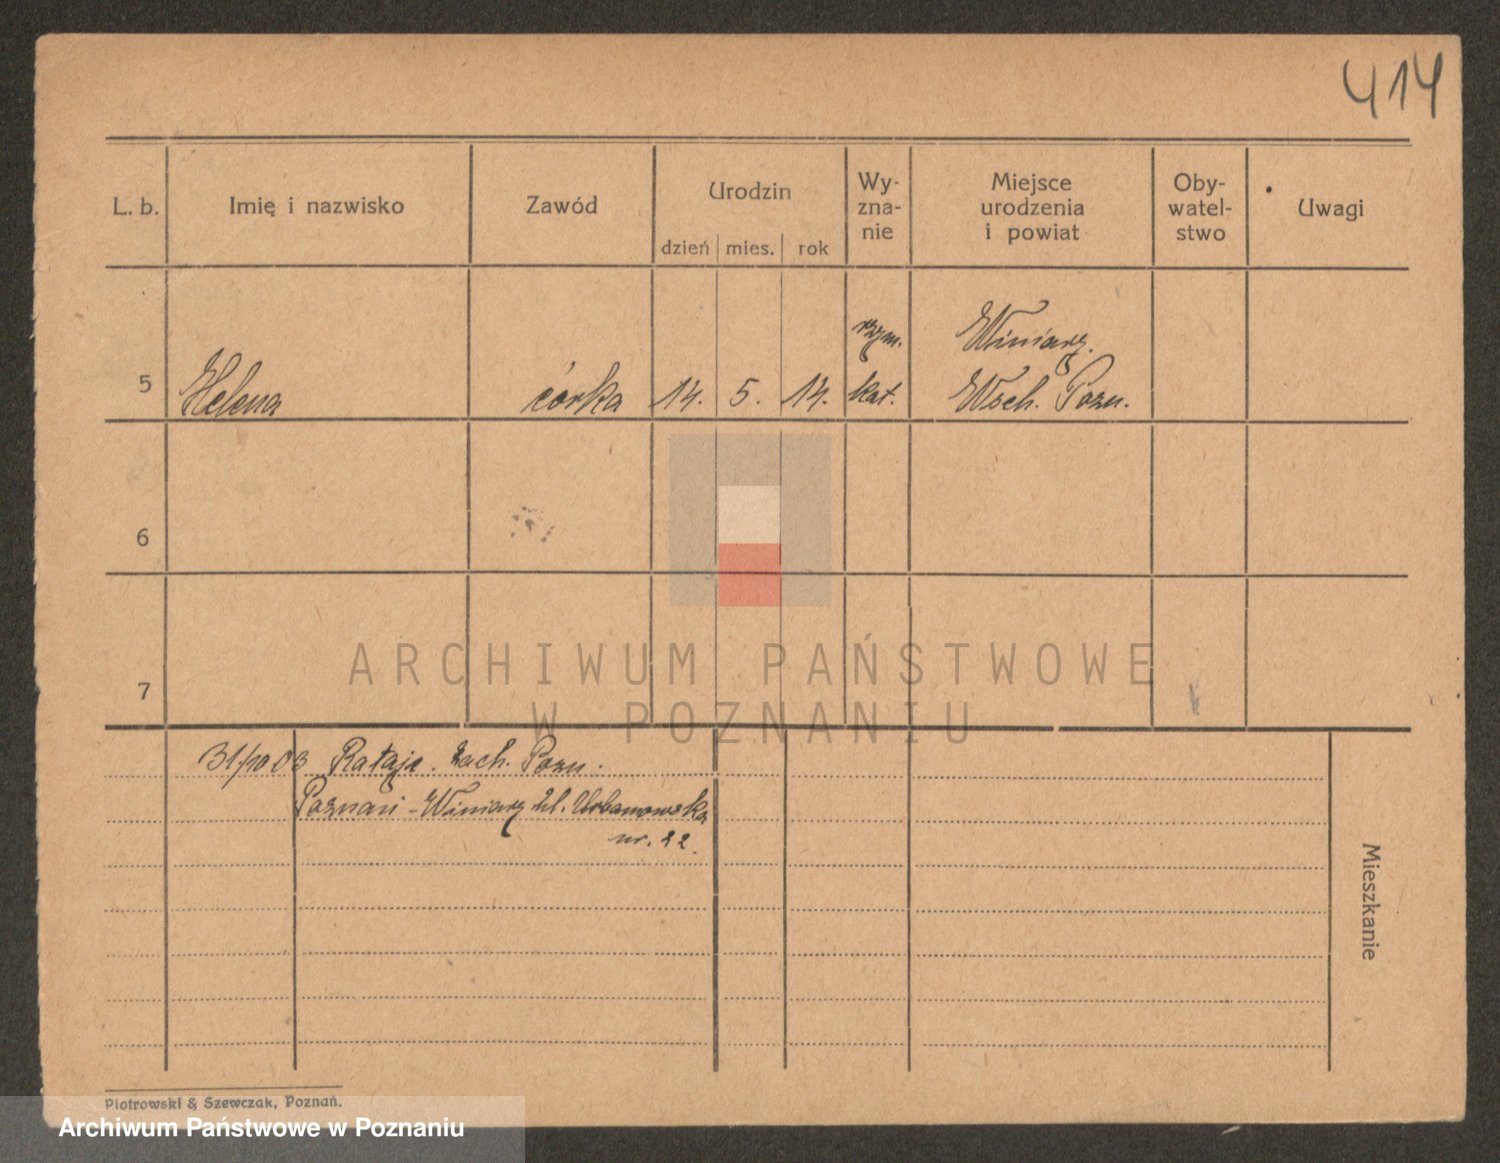 414
L. b. Imię i nazwisko Zawód Urodzin Wy-zna-nie Miejsce urodzenia i powiat Oby-watel-stwo Uwagi
dzień mies. rok
rzym. Winiary.
5 Helena córka 14. 5. 14. kat. Wsch. Pozn.
6
7
ARCHIWUM PAŃSTWOWE
W POZNANIU
31/10 03 Rataje. Zach. Pozn.
Poznań - Winiary ul. Urbanowska
nr. 22.
Mieszkanie
Piotrowski & Szewczak, Poznań.
Archiwum Państwowe w Poznaniu